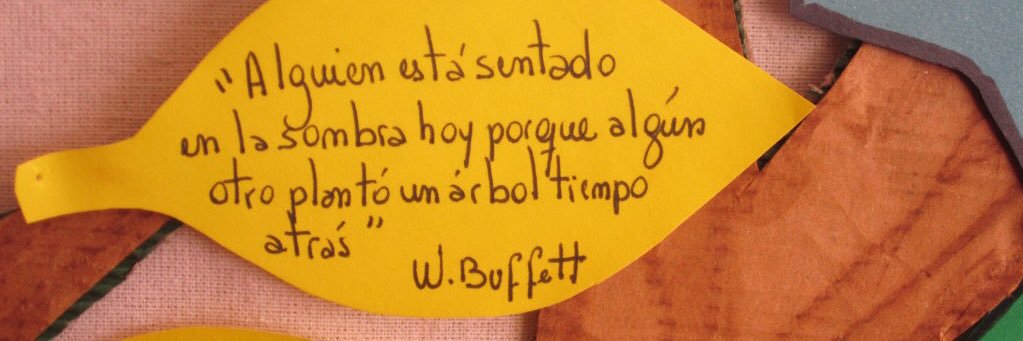 "Alguien está sentado
en la sombra hoy porque algún
otro plantó un árbol tiempo
atrás"
W. Buffett